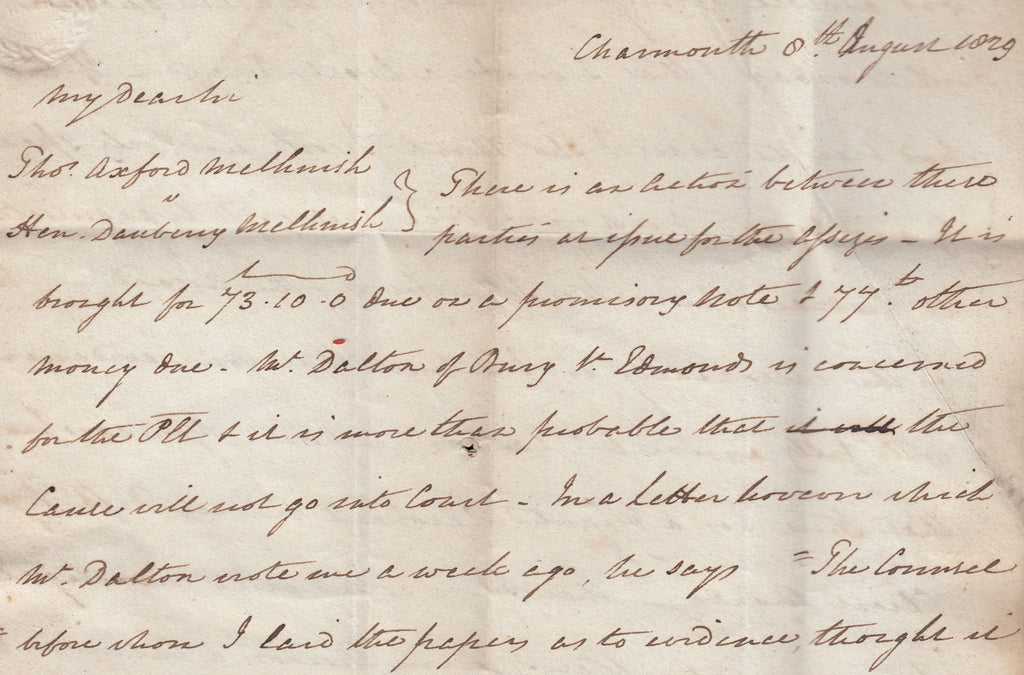 Charmouth 8th. August 1829
My Dear Sir
Thos. Axford Melhuish
"
Hen. Daubeny Melhuish } There is an Action between these
parties at issue for the Assizes - It is
brought for 73.10.0 due on a promisory Note & 77£ other
money due - Mr. Dalton of Bury St. Edmonds is concerned
for the Plt & it is more than probable that it will the
Cause will not go into Court - In a Letter however which
Mr. Dalton wrote me a week ago, he says "The Counsel
before whom I laid the papers as to evidence, thought it